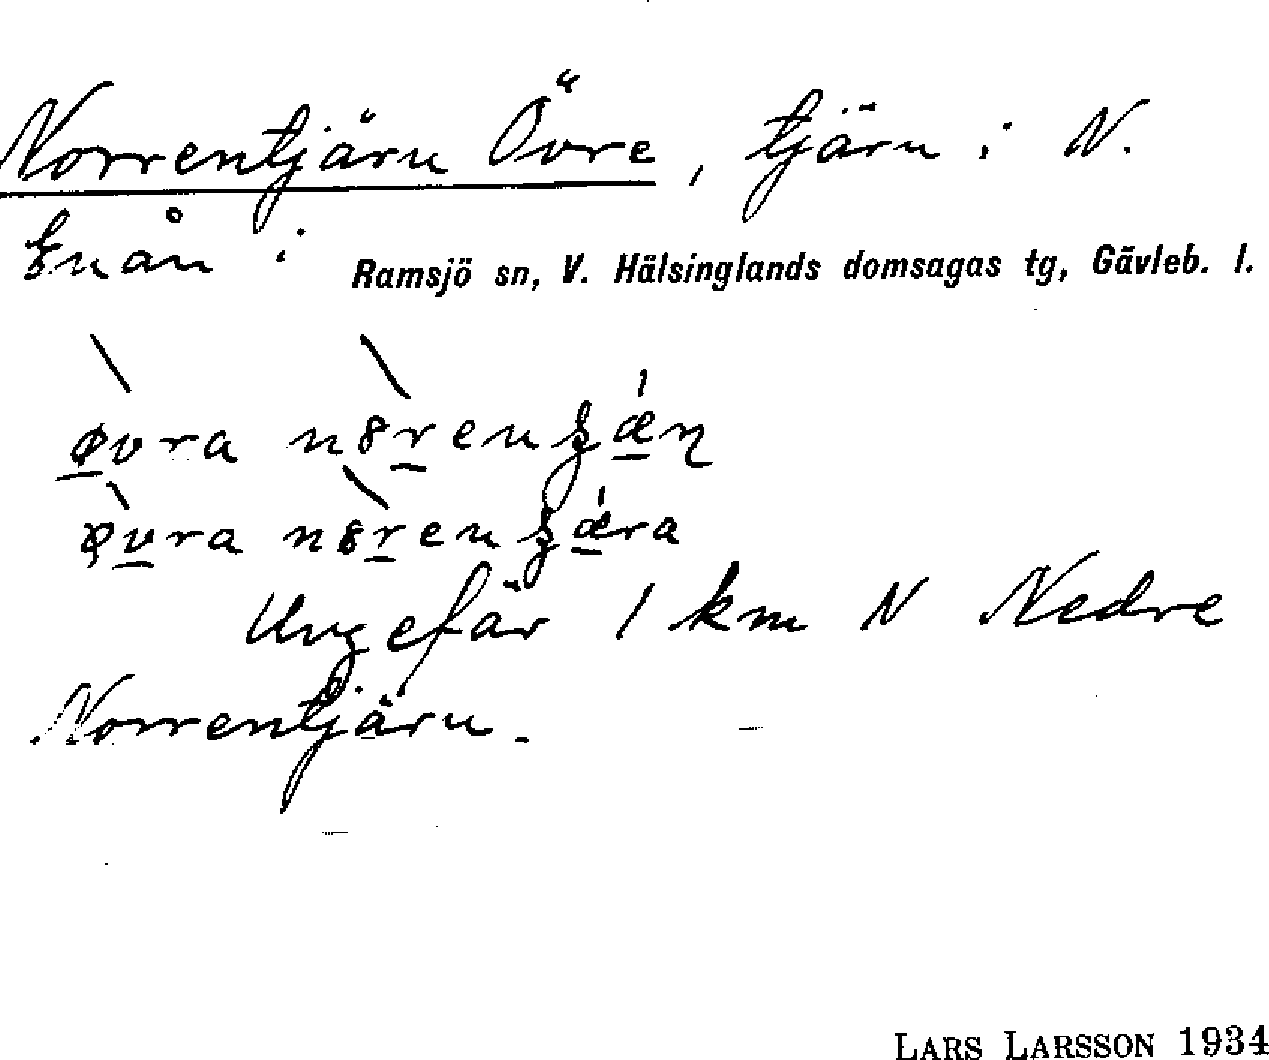 Norrentjärn Övre, tjärn i N.
Enån i Ramsjö sn, V. Hälsinglands domsagas tg, Gävleb. l.
Ungefär 1 km N Nedre
Norrentjärn.
LARS LARSSON 1934